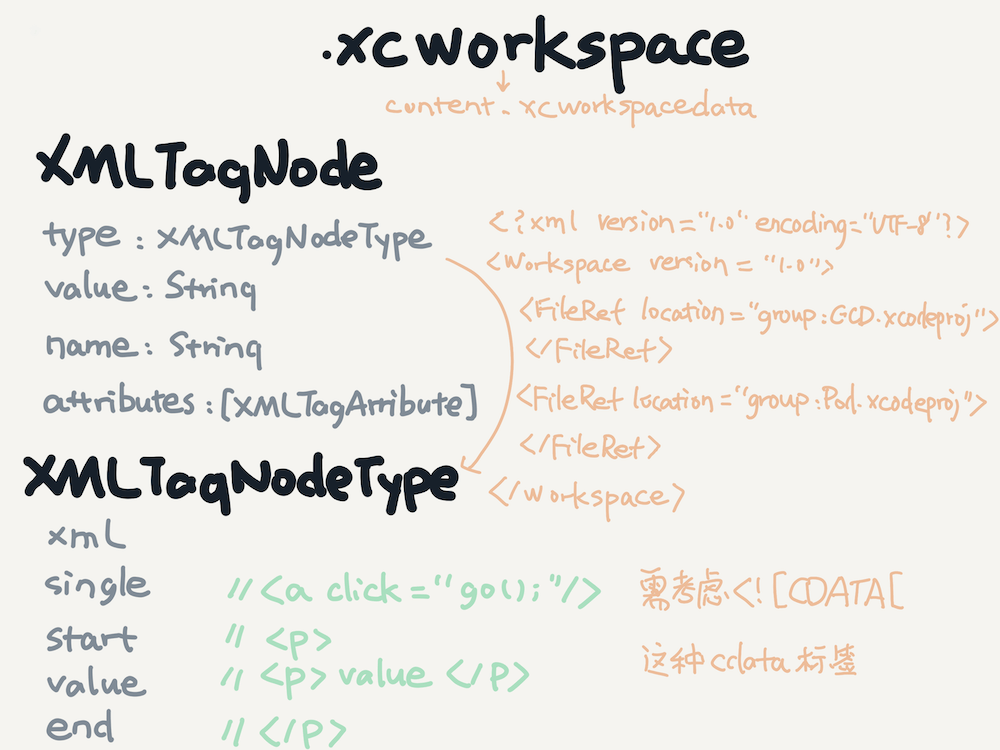 .xcworkspace
content.xcworkspacedata
XMLTagNode
type : XMLTagNodeType
value : String
name : String
attributes : [XMLTagArribute]
<?xml version="1.0" encoding="UTF-8"?>
<Workspace version = "1.0">
<FileRef location="group:GCD.xcodeproj">
</FileRef>
<FileRef location="group:Pod.xcodeproj">
</FileRef>
</Workspace>
XMLTagNodeType
xml
single //<a click="go();"/>
start // <p>
value // <p> value </p>
end // </p>
需考虑<![CDATA[
这种cdata标签